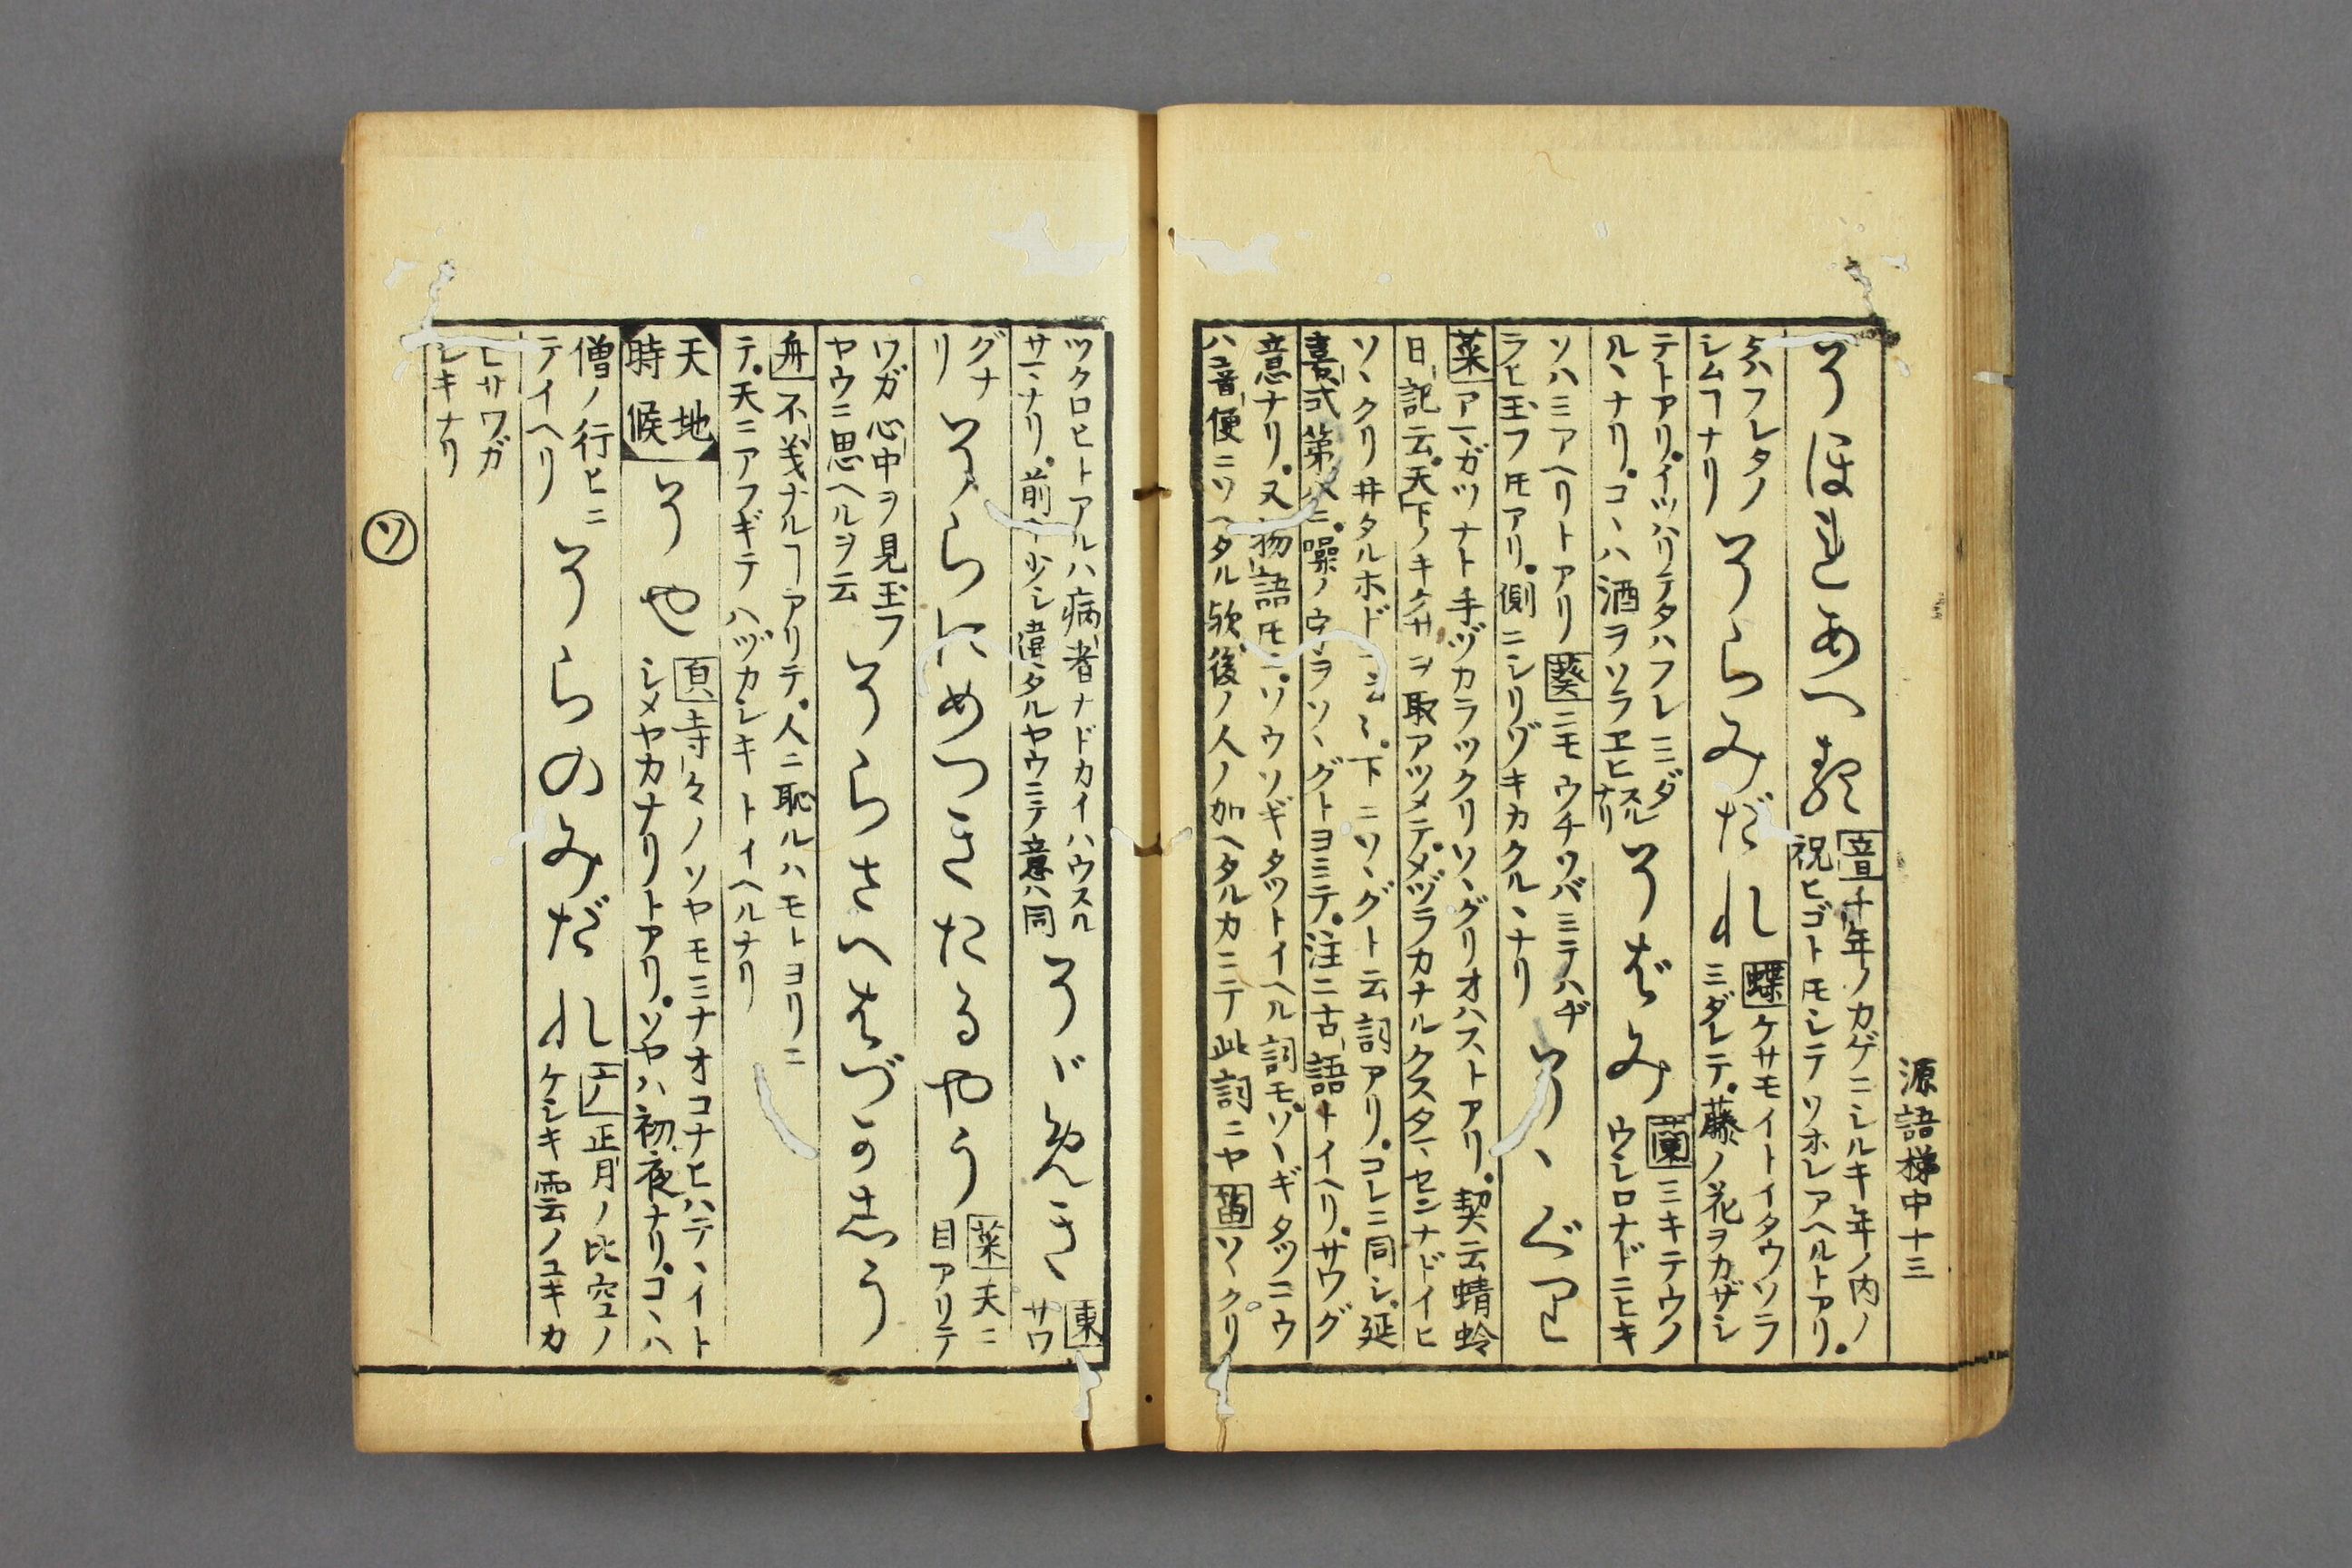 源語梯中十三
そほれあへる 音 千年ノカゲニシルキ年ノ内ノ
祝ヒゴトモシテソホレアヘルトアリ。
タハフレタノ
シムヿナリ
そらみだれ 蝶 ケサモイトイタウソラ
ミダレテ。藤ノ花ヲカザシ
テトアリ。イツハリテタハフレミダ
ルヽナリ。コヽハ酒ヲソラヱヒスルナリ
そばみ 蘭 ミキテウノ
ウシロナドニヒキ
ソハミアヘリトアリ 葵 ニモウチソバミテハヂ
ラヒ玉フ𪜈アリ。側ニシリゾキカクルヽナリ
そゝぐり
菜 アヽガツナト手ヅカラツクリソヽグリオハストアリ。契云蜻蛉
日記云。天下ノキクサヲ取アツメテ。メヅラカナルクスダヽセンナドイヒ
ソヽクリ井タルホドニ云〻。下ニソヽグト云詞アリ。コレニ同シ。延
喜式第八ニ。噪ノ字ヲソヽグトヨミテ。注ニ古語トイヘリ。サワグ
意ナリ。又物語𪜈ニ。ソウソギタツトイヘル詞モ。ソヽギタツニウ
ハ音便ニソヘタル歟。後ノ人ノ加ヘタルカニテ此詞ニヤ 笛 ソヽクリ
ツクロヒトアルハ病者ナドカイハウスル
サマナリ。前ト少シ違タルヤウニテ意ハ同
そゞめき 東 サワ
グナ
リ
そらにめつきたるやう 菜 天ニ
目アリテ
ワガ心中ヲ見玉フ
ヤウニ思ヘルヲ云
そらさへはづかしう
舟 不義ナルヿアリテ。人ニ恥ルハモトヨリニ
テ。天ニアフギテハヅカシキトイヘルナリ
天地
時候
そや 貞 寺々ノソヤモミナオコナヒハテヽイト
シメヤカナリトアリ。ソヤハ初夜ナリ。コヽハ
僧ノ行ヒニ
テイヘリ
そらのみだれ 正月ノ比空ノ
ケシキ雲ノユキカ
ヒサワガ
シキナリ
ソ